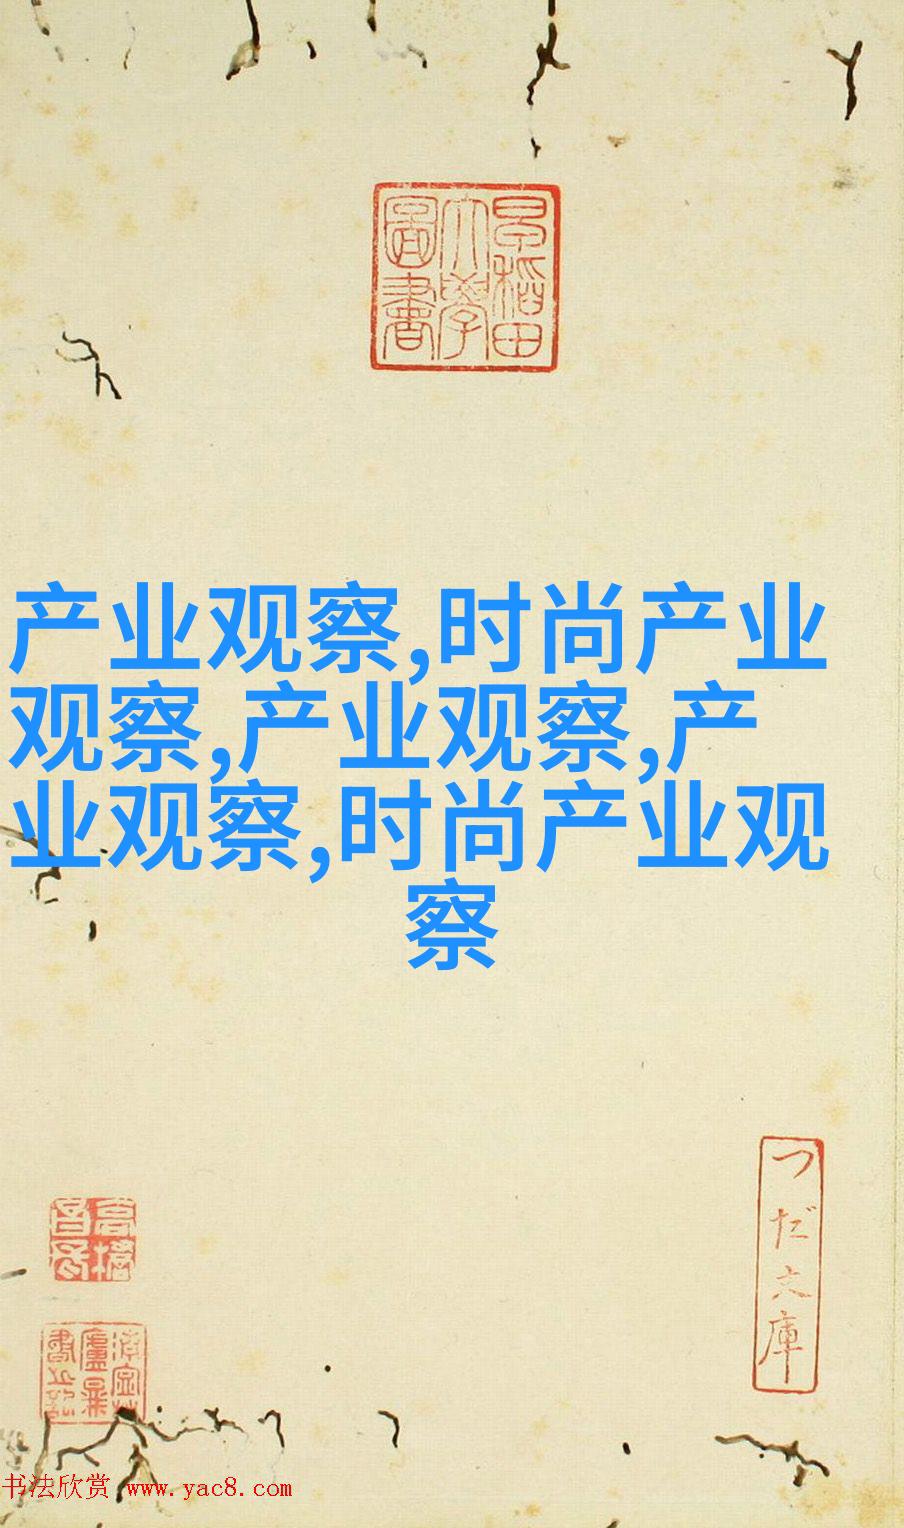 早稲田
大學
圖書
产业观察,时尚产业
观察,产业观察,产
业观察,时尚产业观
察
つだ文庫
书法欣赏 www.yac8.com